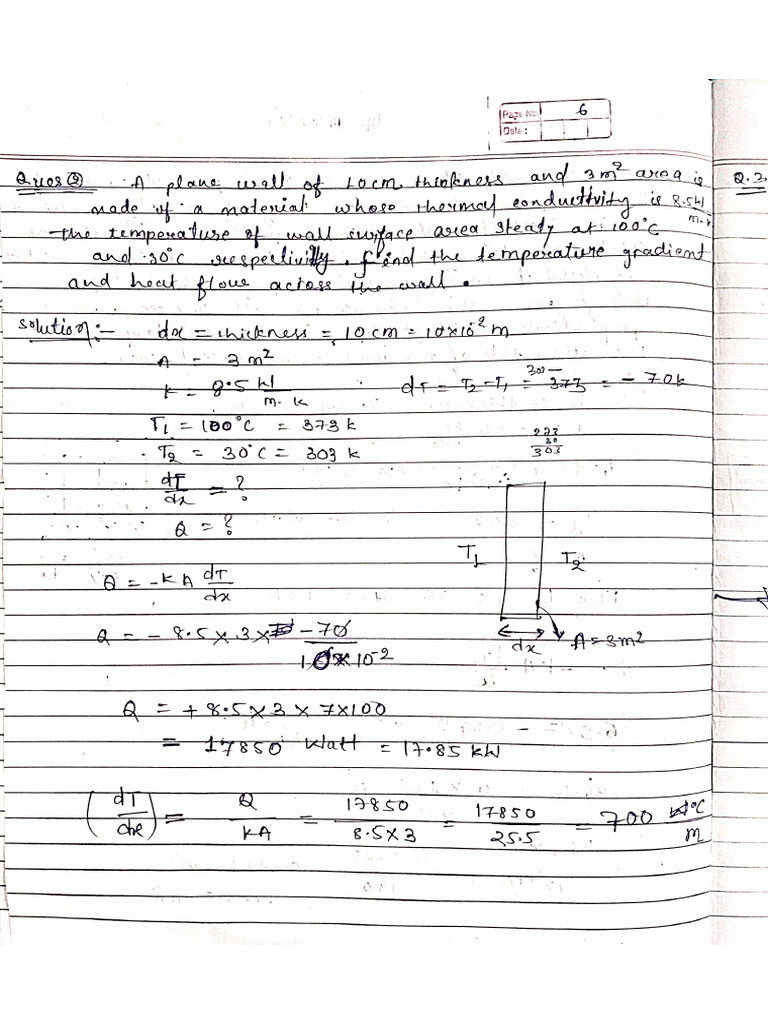 Page No: 6
Date:
Ques ② A plane wall of 10cm thickness and 3m² area is
made of a material whose thermal conductivity is 8.5 W/m.k
the temperature of wall surface area steady at 100°C
and 30°C respectively. Find the temperature gradient
and heat flow across the wall.
Q.2
Solution:- dx = thickness = 10 cm = 10×10⁻² m
A = 3 m²
k = 8.5 W/m.k
dT = T₂-T₁ = 303-373 = -70k
T₁ = 100°C = 373 k
T₂ = 30°C = 303 k
273
30
303
dT/dx = ?
Q = ?
T₁ T₂
Q = -KA dT/dx
dx A=3m²
Q = -8.5×3× -70/10×10⁻²
Q = +8.5×3×7×100
= 17850 Watt = 17.85 kW
(dT/dx) = Q/KA = 17850/8.5×3 = 17850/25.5 = 700 °C/m